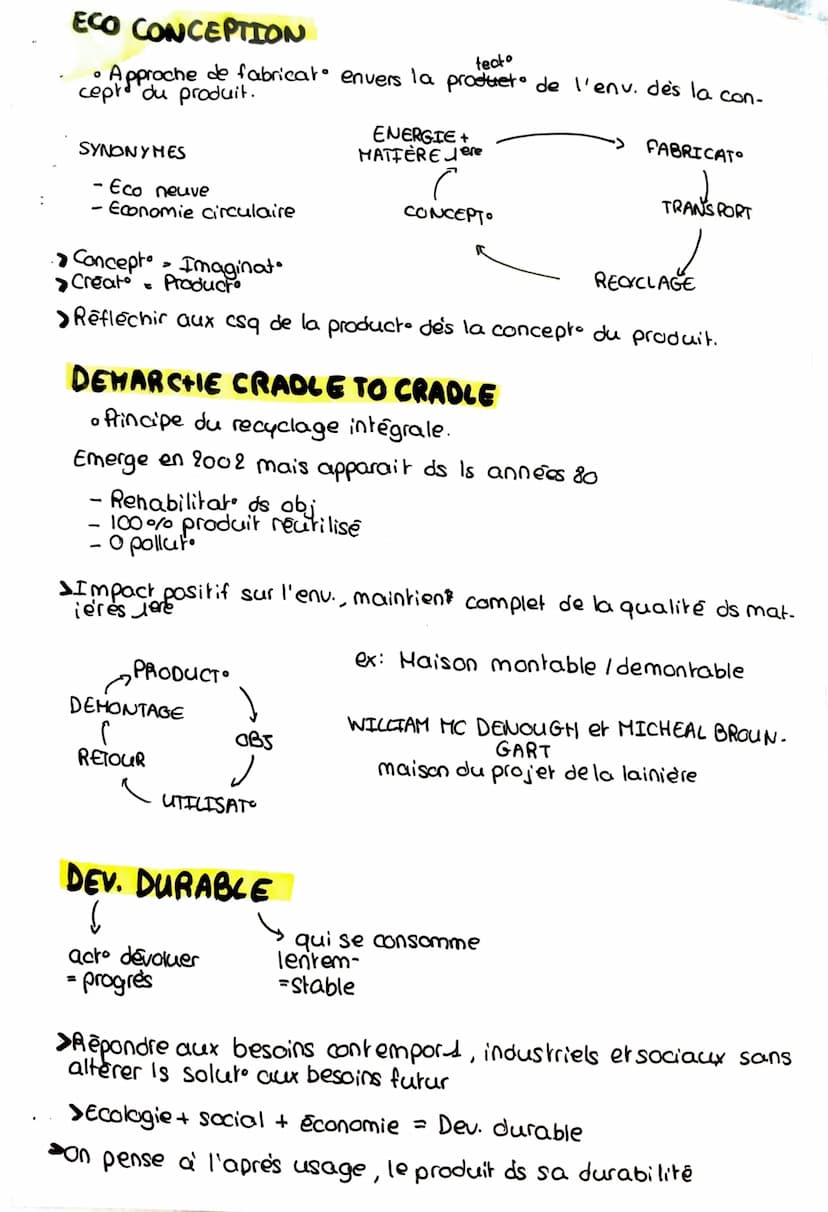 ECO CONCEPTION
° Approche de fabricat° envers la protect° de l'env. dès la con-
cept° du produit.
SYNONYMES
- Eco neuve
- Economie circulaire
ENERGIE +
MATIÈRE 1ere
FABRICAT°
TRANSPORT
RECYCLAGE
CONCEPT°
> Concept° = Imaginat°
> Créat° = Product°
> Réfléchir aux csq de la product° dès la concept° du produit.
DEMARCHE CRADLE TO CRADLE
° Principe du recyclage intégrale.
Emerge en 2002 mais apparait ds ls années 80
- Rehabilitat° ds obj
- 100% produit réutilisé
- 0 pollut°
> Impact positif sur l'env., maintient complet de la qualité ds mat-
ières 1ere
PRODUCT°
OBJ
UTILISAT°
RETOUR
DEMONTAGE
ex: Maison montable / demontable
WILLIAM MC DENOUGH et MICHEAL BROUN-
GART
maison du projet de la lainière
DEV. DURABLE
act° dévoluer
= progrès
qui se consomme
lentem-
= stable
> Répondre aux besoins contempor, industriels et sociaux sans
altérer ls solut° aux besoins futur
> Ecologie + social + économie = Dev. durable
> On pense à l'après usage, le produit ds sa durabilité